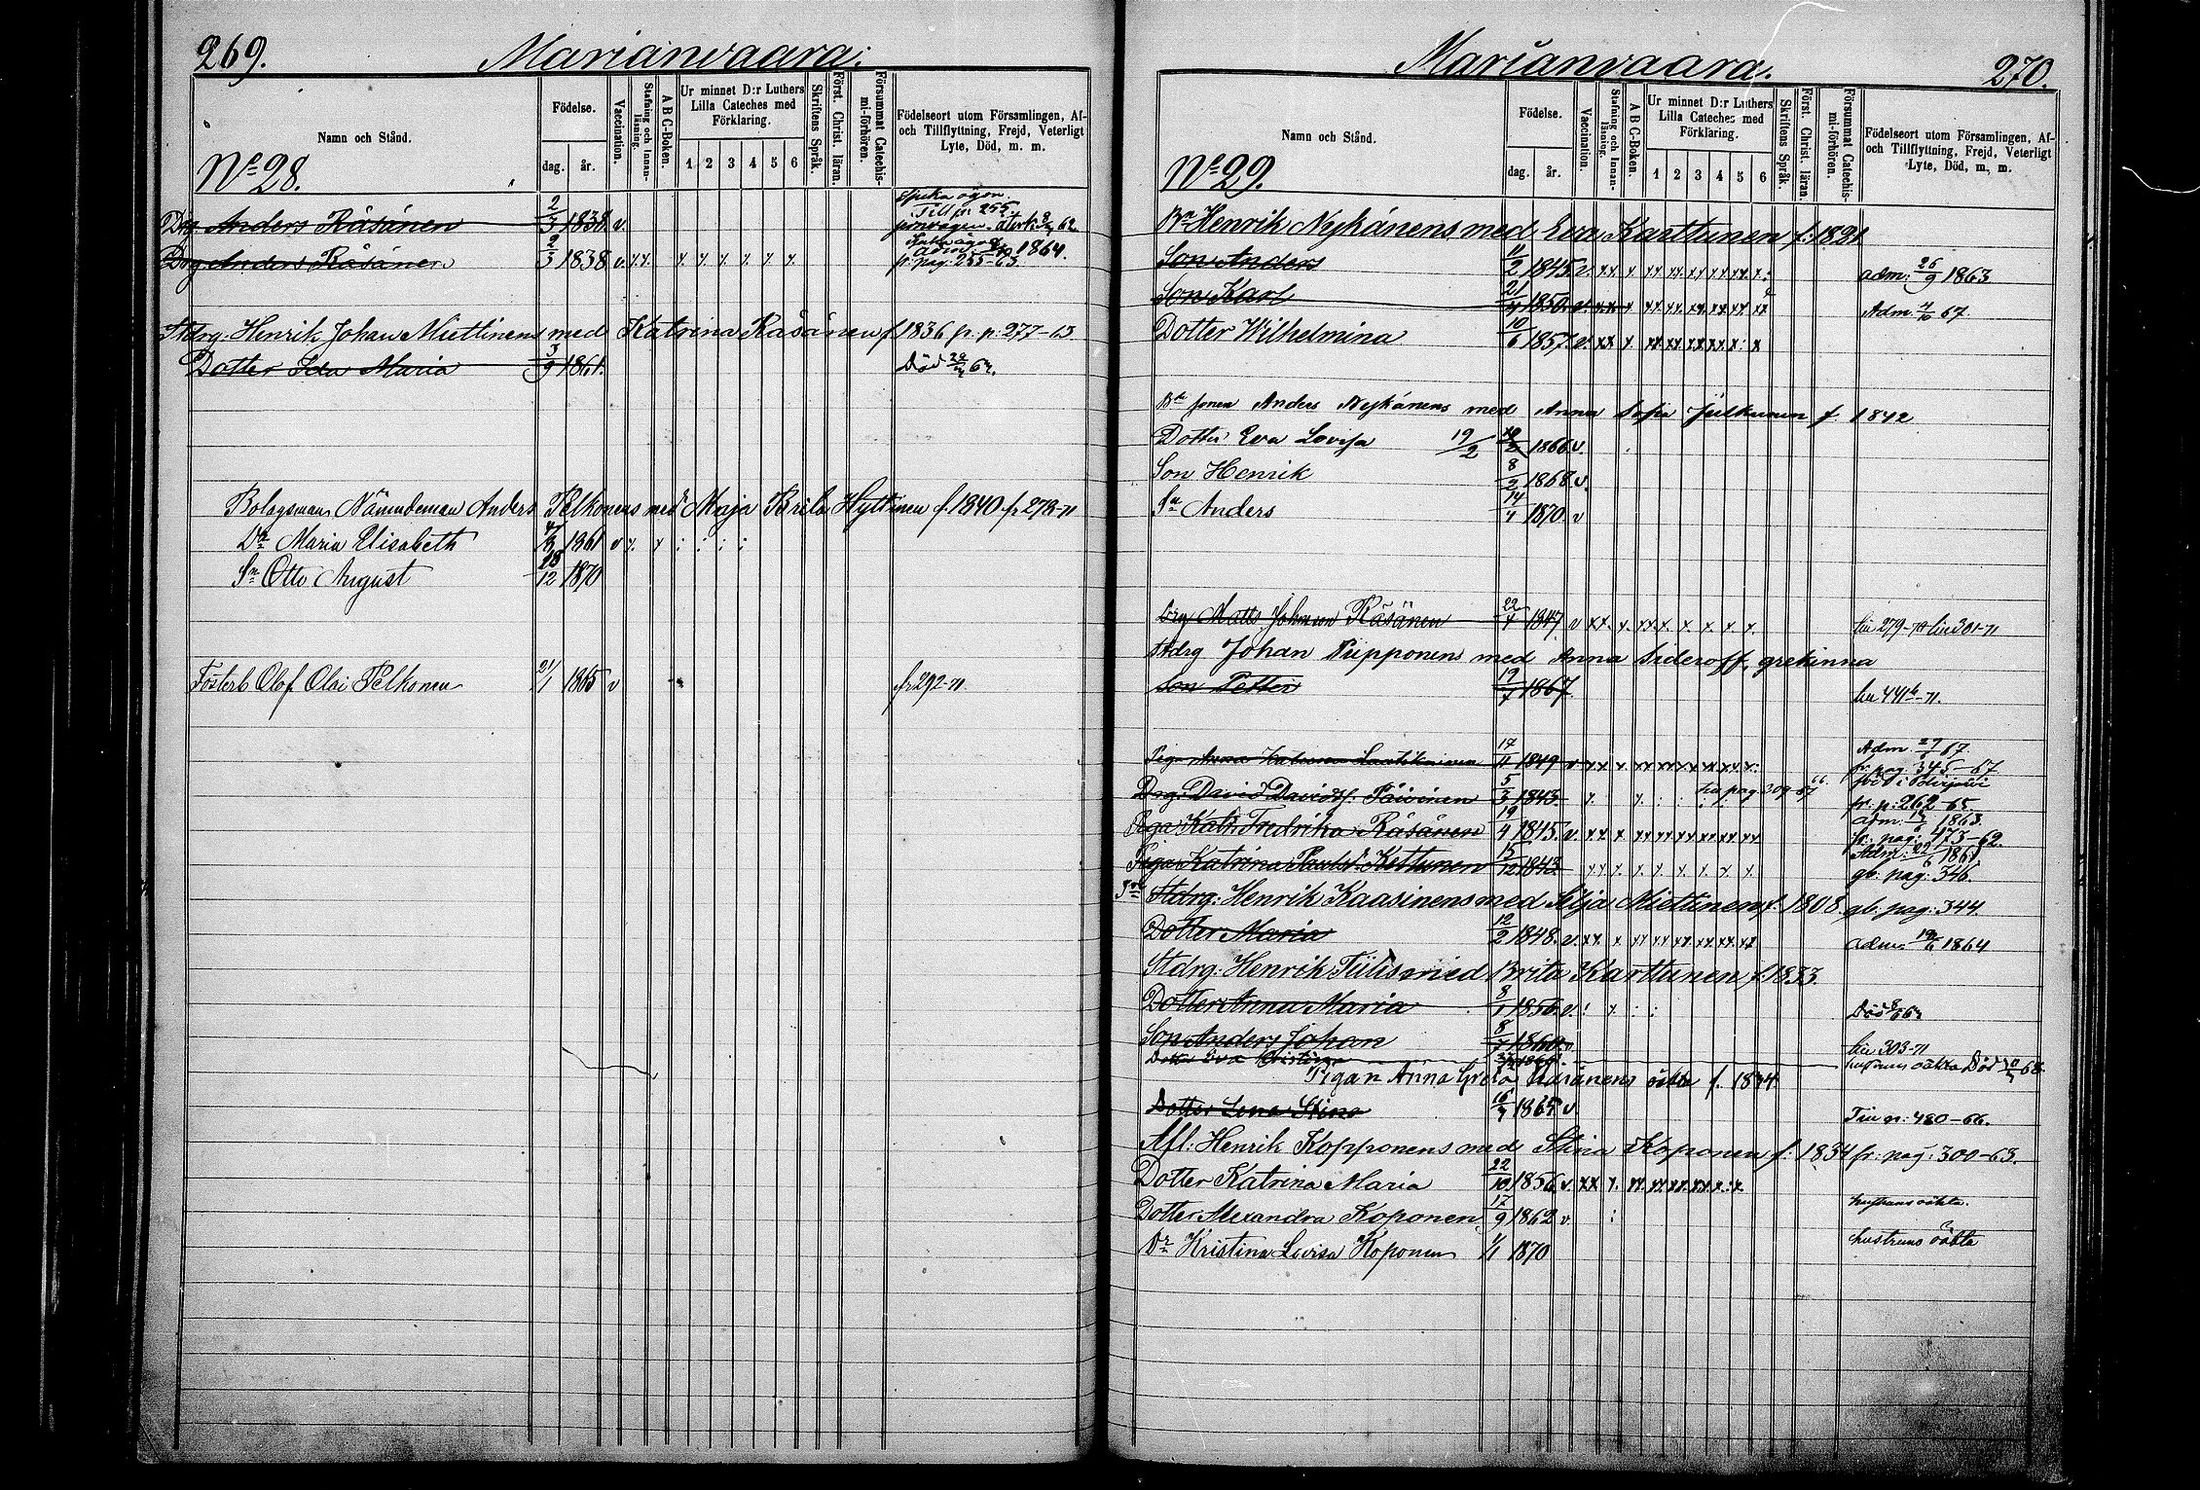 269.
Marianvaara.
Namn och Stånd.
Födelse.
dag.
år.
Vaccination.
Stafning och Innan-läsning.
A B C-Boken.
Ur minnet D:r Luthers
Lilla Cateches med
Förklaring.
1 2 3 4 5 6
Skriftens Språk.
Först. Christ. läran.
Försummat Catechis-
mi-förhören.
Födelseort utom Församlingen, Af-
och Tillflyttning, Frejd, Veterligt
Lyte, Död, m. m.
No 28.
Drg Anders Räsänen 2/3 1838 v.
Drg Anders Räsänen 2/3 1838 v. fr. pag. 255-63 1864.
Stdrg: Henrik Johan Miettinens med Katrina Räsänen f. 1836 fr. p: 277-63
Dotter Ida Maria 3/9 1861. Död
Bolagsman Nämndeman Anders Pelkonens med Maja Brita Hyttinen f. 1840 fr 273-71
Dr Maria Elisabeth 1861 v
Sn Otto August 28/12 1870
Fosterb Olof Olai Pelkonen 21/1 1865 v fr 292-71
Marianvaara.
270.
Namn och Stånd.
Födelse.
dag.
år.
Vaccination.
Stafning och Innan-läsning.
A B C-Boken.
Ur minnet D:r Luthers
Lilla Cateches med
Förklaring.
1 2 3 4 5 6
Skriftens Språk.
Först. Christ. läran.
Försummat Catechis-
mi-förhören.
Födelseort utom Församlingen, Af-
och Tillflyttning, Frejd, Veterligt
Lyte, Död, m. m.
No 29.
Bn Henrik Nykänens med Eva Karttunen f. 1821
Son Anders 11/2 1845. v. adm: 26/9 1863
Son Karl 1850. v. Adm. 4/10 67.
Dotter Wilhelmina 10/6 1857 v.
Bn sonen Anders Nykänens med Anna Sofia f. 1842
Dotter Eva Lovisa 19/2 1866 v.
Son Henrik 8/2 1868 v.
Sn Anders 14/1 1870 v
Drg Matts Johnsson Räsänen 22/4 1847 v
Stdrg Johan Piipponens med Anna Sideroff, grekinna
Son Petter 19/7 1867.
Piga Anna 17/11 1849 v Adm. 67. fr. pag. 345-67
Drg: David Davidsf. Päivinen 5/3 1843. fr. p: 262-65.
Piga Katr. Fredrika Räsänen 19/4 1845. v. adm: 1863. fr. pag: 473-62.
Piga Katrina Paulsf. Kettunen 15/12 1843. Adm: 22/6 1861 gb: pag: 346.
Stdrg: Henrik Kaasinens med Silja Miettinen f. 1808. gb. pag: 344.
Dotter Maria 12/2 1848. v. adm. 1864
Stdrg: Henrik Tiilis med Brita Karttunen f. 1833.
Dotter Anna Maria 8/1 1856. v. Död
Son Anders Johan 8/7 1860 303-71
Pigan Anna Greta Räsänens oäkta f. 1844
Dotter Lena Stina 16/7 1865 v 480-66.
Afl: Henrik Kopponens med Stina Koponen f: 1834 fr: pag: 300-63.
Dotter Katrina Maria 22/10 1856 v.
Dotter Alexandra Koponen 17/9 1862 v. hustruns oäkta.
Dr Kristina Lovisa Koponen 1/1 1870 hustruns oäkta